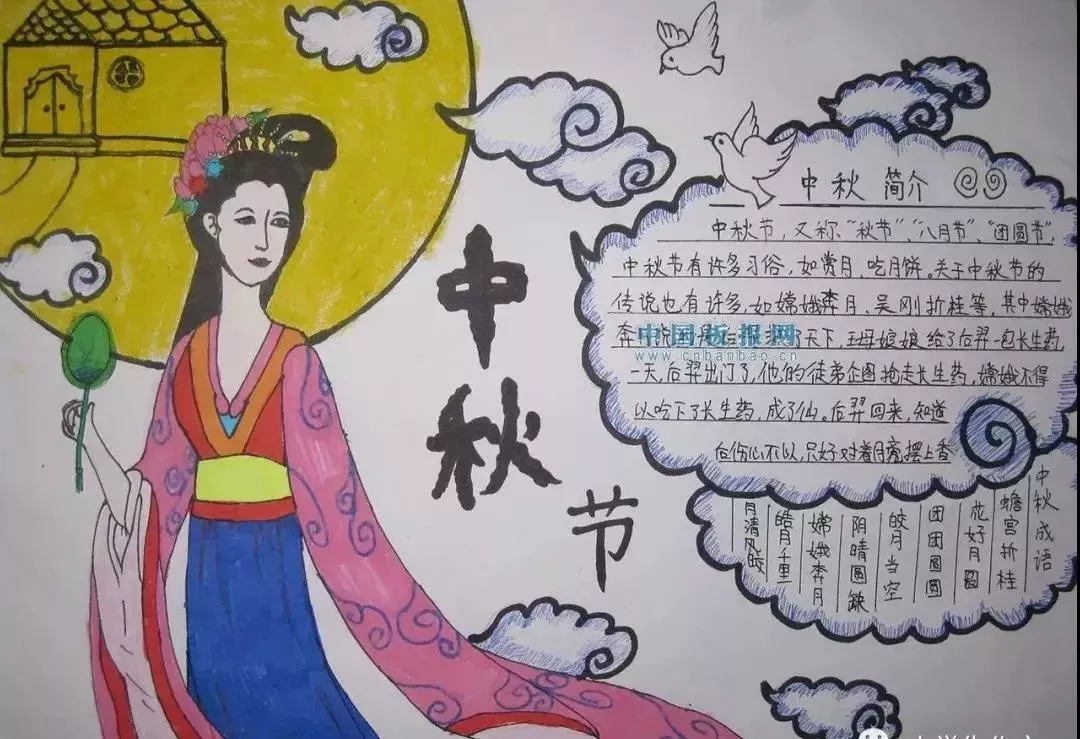 中秋节
中秋 简介
中秋节，又称“秋节”、“八月节”、“团圆节”，
中秋节有许多习俗，如赏月、吃月饼。关于中秋节的
传说也有许多，如嫦娥奔月、吴刚折桂等，其中嫦娥
奔 了天下，王母娘娘给了后羿一包长生药
一天，后羿出门了，他的徒弟企图抢走长生药，嫦娥不得
以吃下了长生药，成了仙。后羿回来，知道
后伤心不以，只好对着月亮摆上香
中国板报网
www.cnbanbao.cn
中秋成语
蟾宫折桂
花好月圆
团团圆圆
皎月当空
阴晴圆缺
嫦娥奔月
皓月千
月清风皎